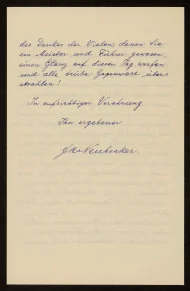 des Dankes der Vielen, denen Sie
ein Meister und Führer gewesen,
einen Glanz auf diesen Tag werfen
und alle trübe Gegenwart über-
strahlen!
In aufrichtiger Verehrung
Ihr ergebener
Neubecker